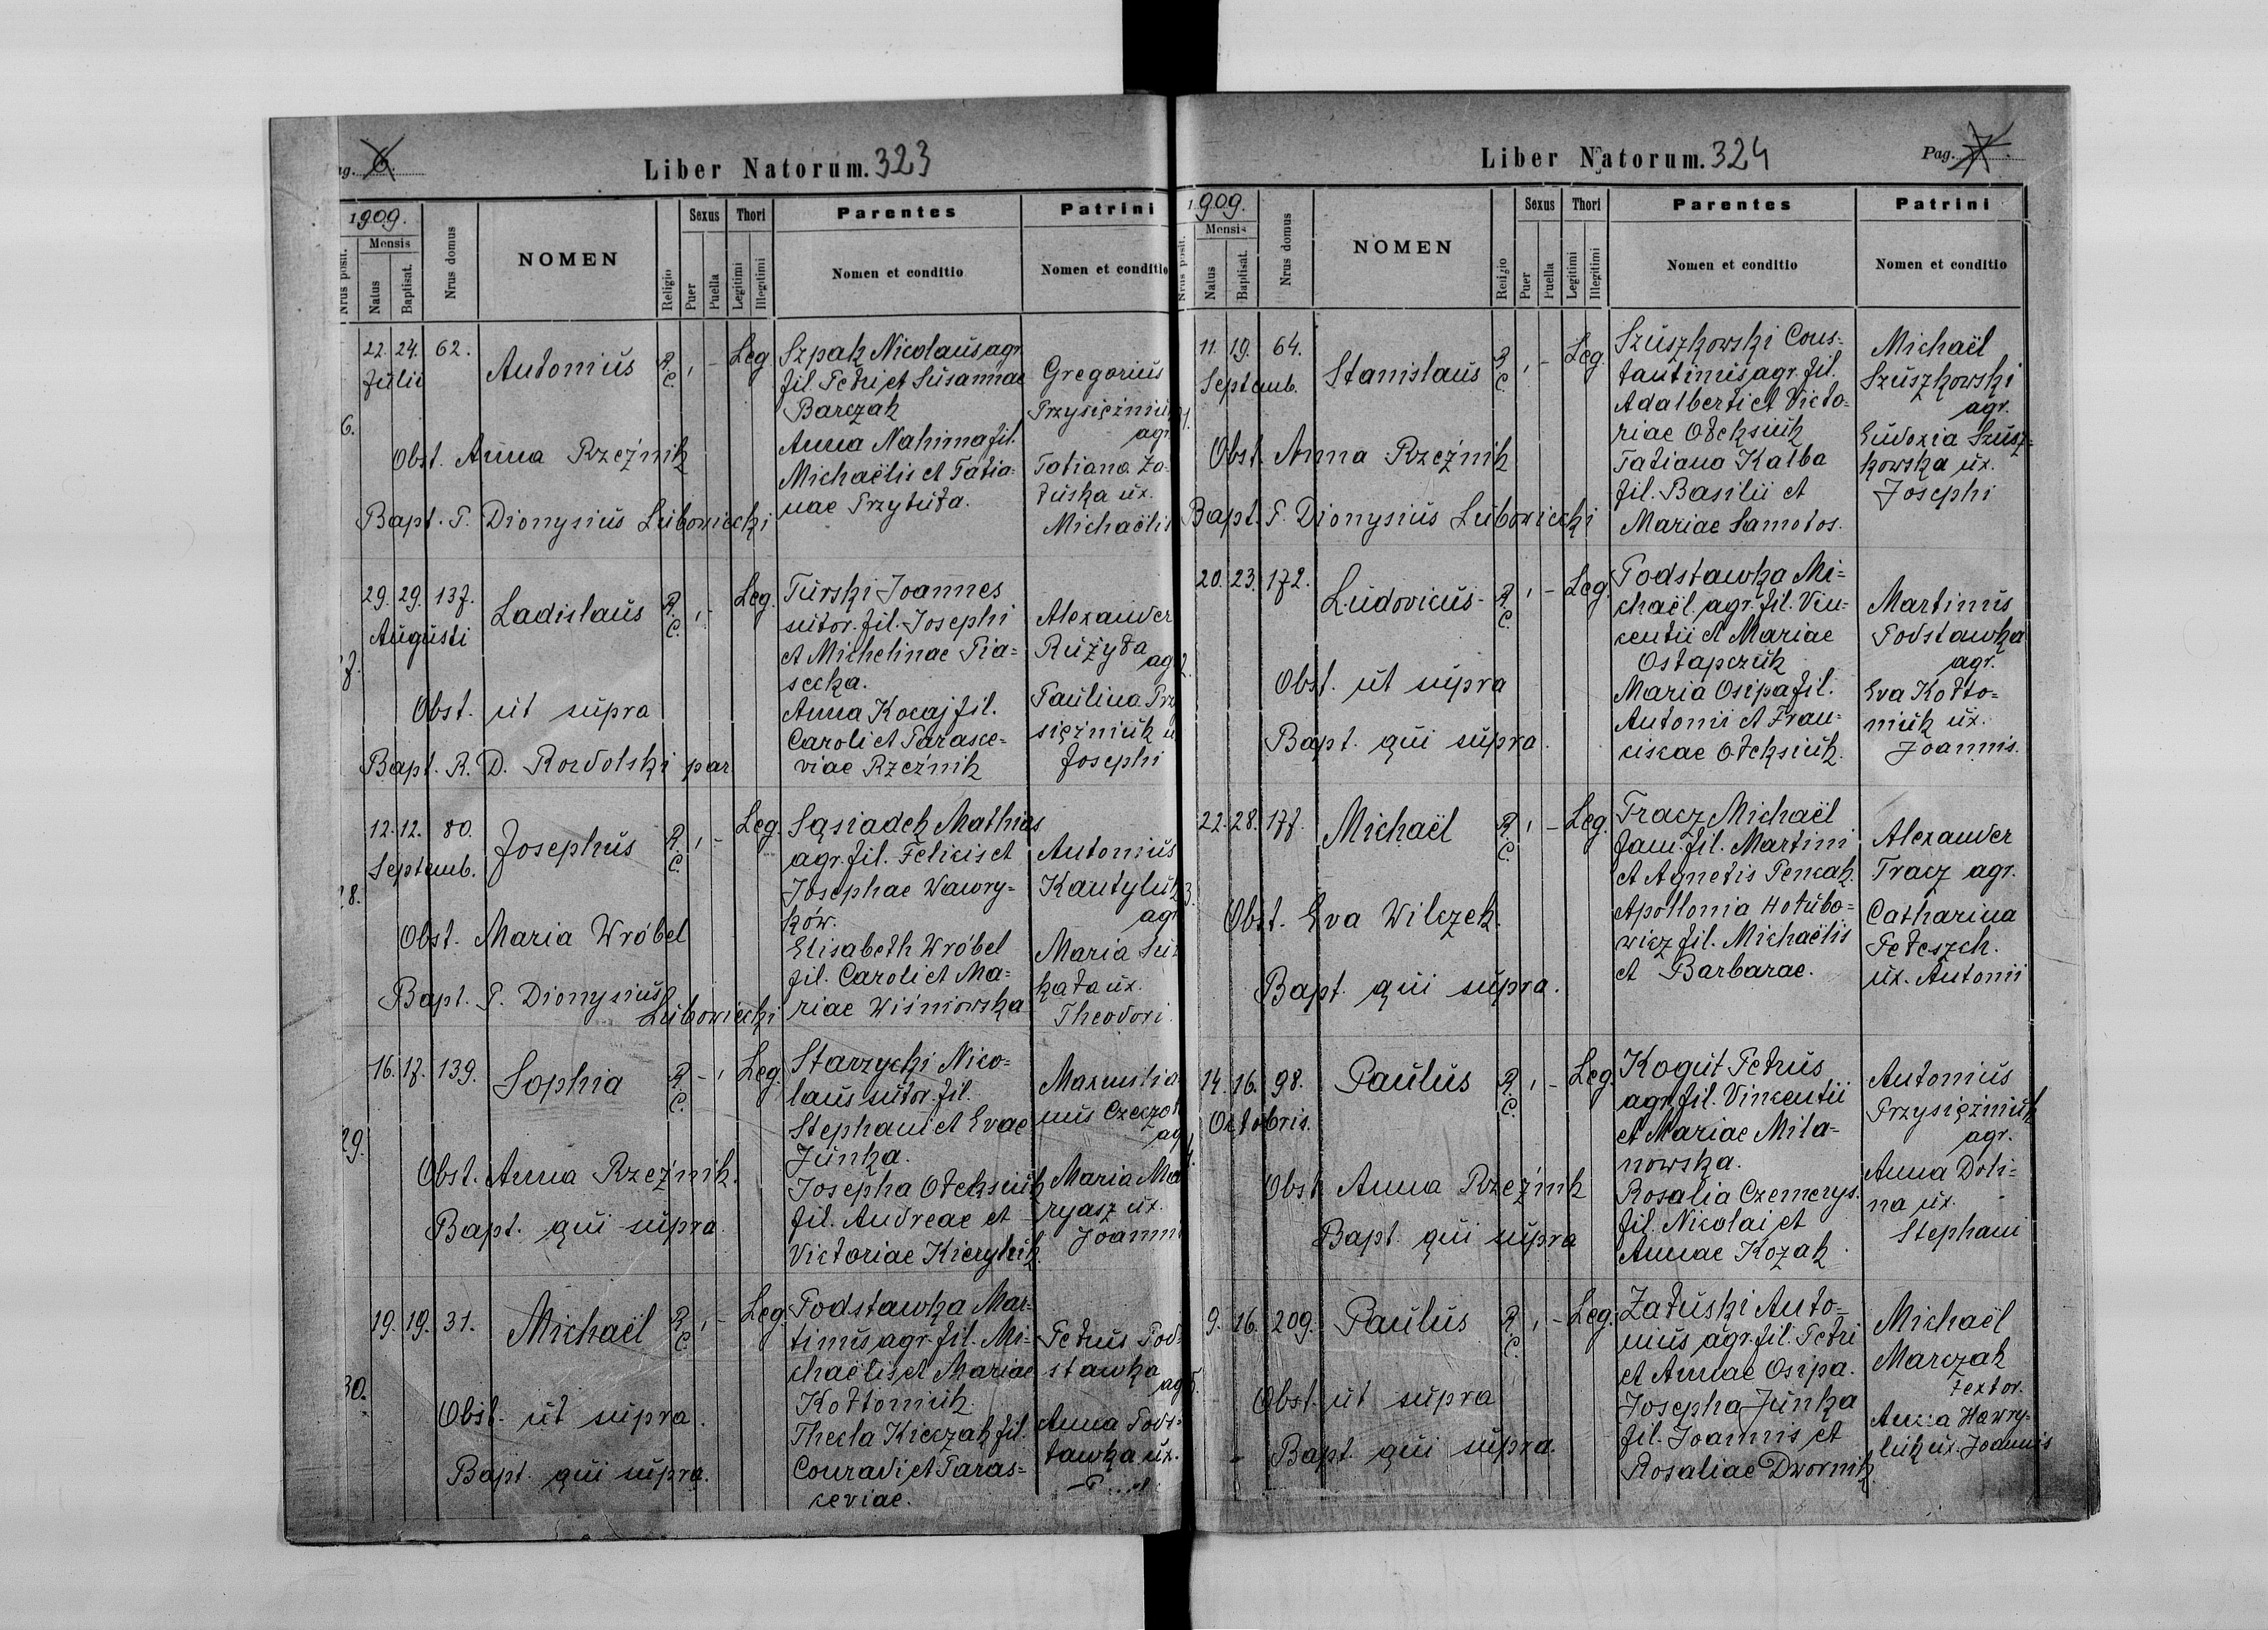 ag. 6.
Liber Natorum. 323
1909.
Nrus posit.
Mensis
Natus
Baptisat.
Nrus domus
NOMEN
Religio
Sexus
Puer
Puella
Thori
Legitimi
Illegitimi
Parentes
Nomen et conditio
Patrini
Nomen et conditio
6.
22. 24. 62.
Julii
Antonius
R.
C.
, -
Leg
Szpak Nicolaus agr.
fil. Petri et Susannae
Barczak
Anna Nahirna fil.
Michaëlis et Tatia-
nae Przytuła.
Gregorius
Przysiężniu
agr
Tatiana Za-
łuska ux.
Michaëlis
Obst. Anna Rzeźnik
Bapt. P. Dionysius Lubowiecki
29. 29. 137.
Augusti
Ladislaus
R.
C.
, -
Leg.
Turski Joannes
sutor. fil. Josephi
et Michelinae Pia-
secka.
Anna Kocaj fil.
Caroli et Parasce-
viae Rzeźnik
Alexander
Rużyła
ag
Paulina Prz
siężniuk u
Josephi
Obst. ut supra
Bapt. R. D. Rozdolski par
28.
12. 12. 80.
Septemb.
Josephus
R.
C.
, -
Leg.
Sąsiadek Mathias
agr. fil. Felicis et
Josephae Wawry-
ków.
Elisabeth Wróbel
fil. Caroli et Ma-
riae Wiśniowska
Antonius
Kantyluk
agr
Maria
kała ux.
Theodori.
Obst. Maria Wróbel
Bapt. P. Dionysius
Lubowiecki
29.
16. 17. 139.
Sophia
R.
C.
- ,
Leg.
Starzycki Nico-
laus sutor. fil.
Stephani et Evae
Junka.
Josepha Ołeksiuk
fil. Andreae et
Victoriae Kieryluk.
Maximilia
nus Czeczot
ag
Maria Ma
ryasz ux.
Joanni
Obst. Anna Rzeźnik.
Bapt. qui supra.
30.
19. 19. 31.
Michaël
R.
C.
, -
Leg.
Podstawka Mar-
tinus agr. fil. Mi-
chaëlis et Mariae
Kołtoniuk.
Thecla Kieczak fil.
Conradi et Paras-
ceviae.
Petrus Pod-
stawka
ag
Anna Pods-
tawka ux.
Obst. ut supra.
Bapt. qui supra.
Liber Natorum. 324
Pag. 7.
1909.
Nrus posit.
Mensis
Natus
Baptisat.
Nrus domus
NOMEN
Religio
Sexus
Puer
Puella
Thori
Legitimi
Illegitimi
Parentes
Nomen et conditio
Patrini
Nomen et conditio
1.
11. 19. 64.
Septemb.
Stanislaus
R.
C.
, -
Leg.
Szuszkowski Cons-
tantinus agr. fil.
Adalberti et Victo-
riae Ołeksiuk
Tatiana Kalba
fil. Basilii et
Mariae Samotos.
Michaël
Szuszkowski
agr.
Eudoxia Szusz-
kowska ux.
Josephi
Obst. Anna Rzeźnik
Bapt. P. Dionysius Lubowiecki
2.
20. 23. 172.
Ludovicus
R.
C.
, -
Leg.
Podstawka Mi-
chaël. agr. fil. Vin-
centii et Mariae
Ostapczuk
Maria Osipa fil.
Antonii et Fran-
ciscae Ołeksiuk.
Martinus
Podstawka
agr.
Eva Kołto-
niuk ux.
Joannis.
Obst. ut supra
Bapt. qui supra.
3.
22. 28. 177.
Michaël
R.
C.
, -
Leg.
Tracz Michaël
fam. fil. Martini
et Agnetis Pencak.
Apollonia Hołubo-
wicz fil. Michaëlis
et Barbarae.
Alexander
Tracz agr.
Catharina
Peteszch.
ux. Antonii
Obst. Eva Wilczek.
Bapt. qui supra.
14. 16. 98.
Octobris.
Paulus
R.
C.
, -
Leg.
Kogut Petrus
agr. fil. Vincentii
et Mariae Mila-
nowska.
Rosalia Czemerys.
fil. Nicolai et
Annae Kozak.
Antonius
Przysiężniuk
agr.
Anna Doli-
na ux.
Stephani
Obst. Anna Rzeźnik
Bapt. qui supra
5.
9. 16. 209.
Paulus
R.
C.
, -
Leg.
Załuski Anto-
nius agr. fil. Petri
et Annae Osipa.
Josepha Junka
fil. Joannis et
Rosaliae Dwornik.
Michaël
Marczak
textor.
Anna Hawry-
luk ux. Joannis
Obst. ut supra
Bapt. qui supra.